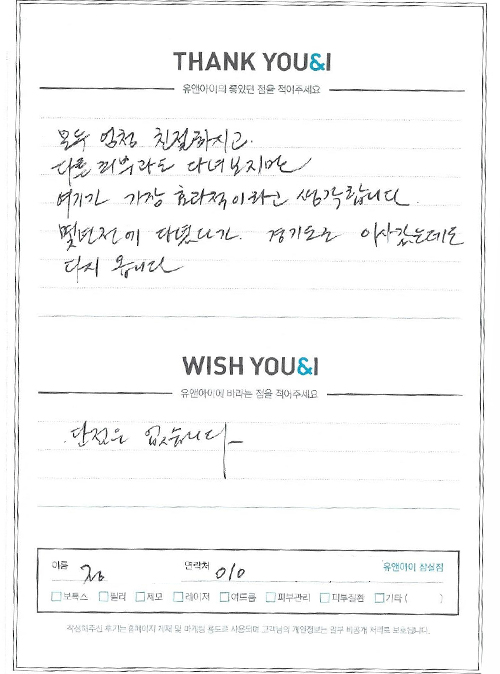 THANK YOU&I
유앤아이의 좋았던 점을 적어주세요
모두 엄청 친절하시고.
다른 피부과도 다녀보지만
여기가 가장 효과적이라고 생각합니다.
몇년전에 다녔다가. 경기도로 이사갔는데도
다시 옵니다
WISH YOU&I
유앤아이에 바라는 점을 적어주세요
단점은 없습니다
이름 연락처 010 유앤아이 잠실점
보톡스 필러 제모 레이저 여드름 피부관리 피부질환 기타 ( )
작성해주신 후기는 홈페이지 게재 및 마케팅 용도로 사용되며 고객님의 개인정보는 일부 비공개 처리로 보호됩니다.